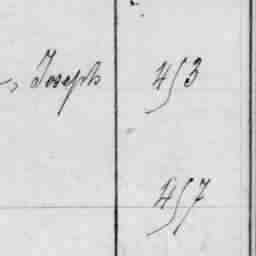 , Joseph 453
457